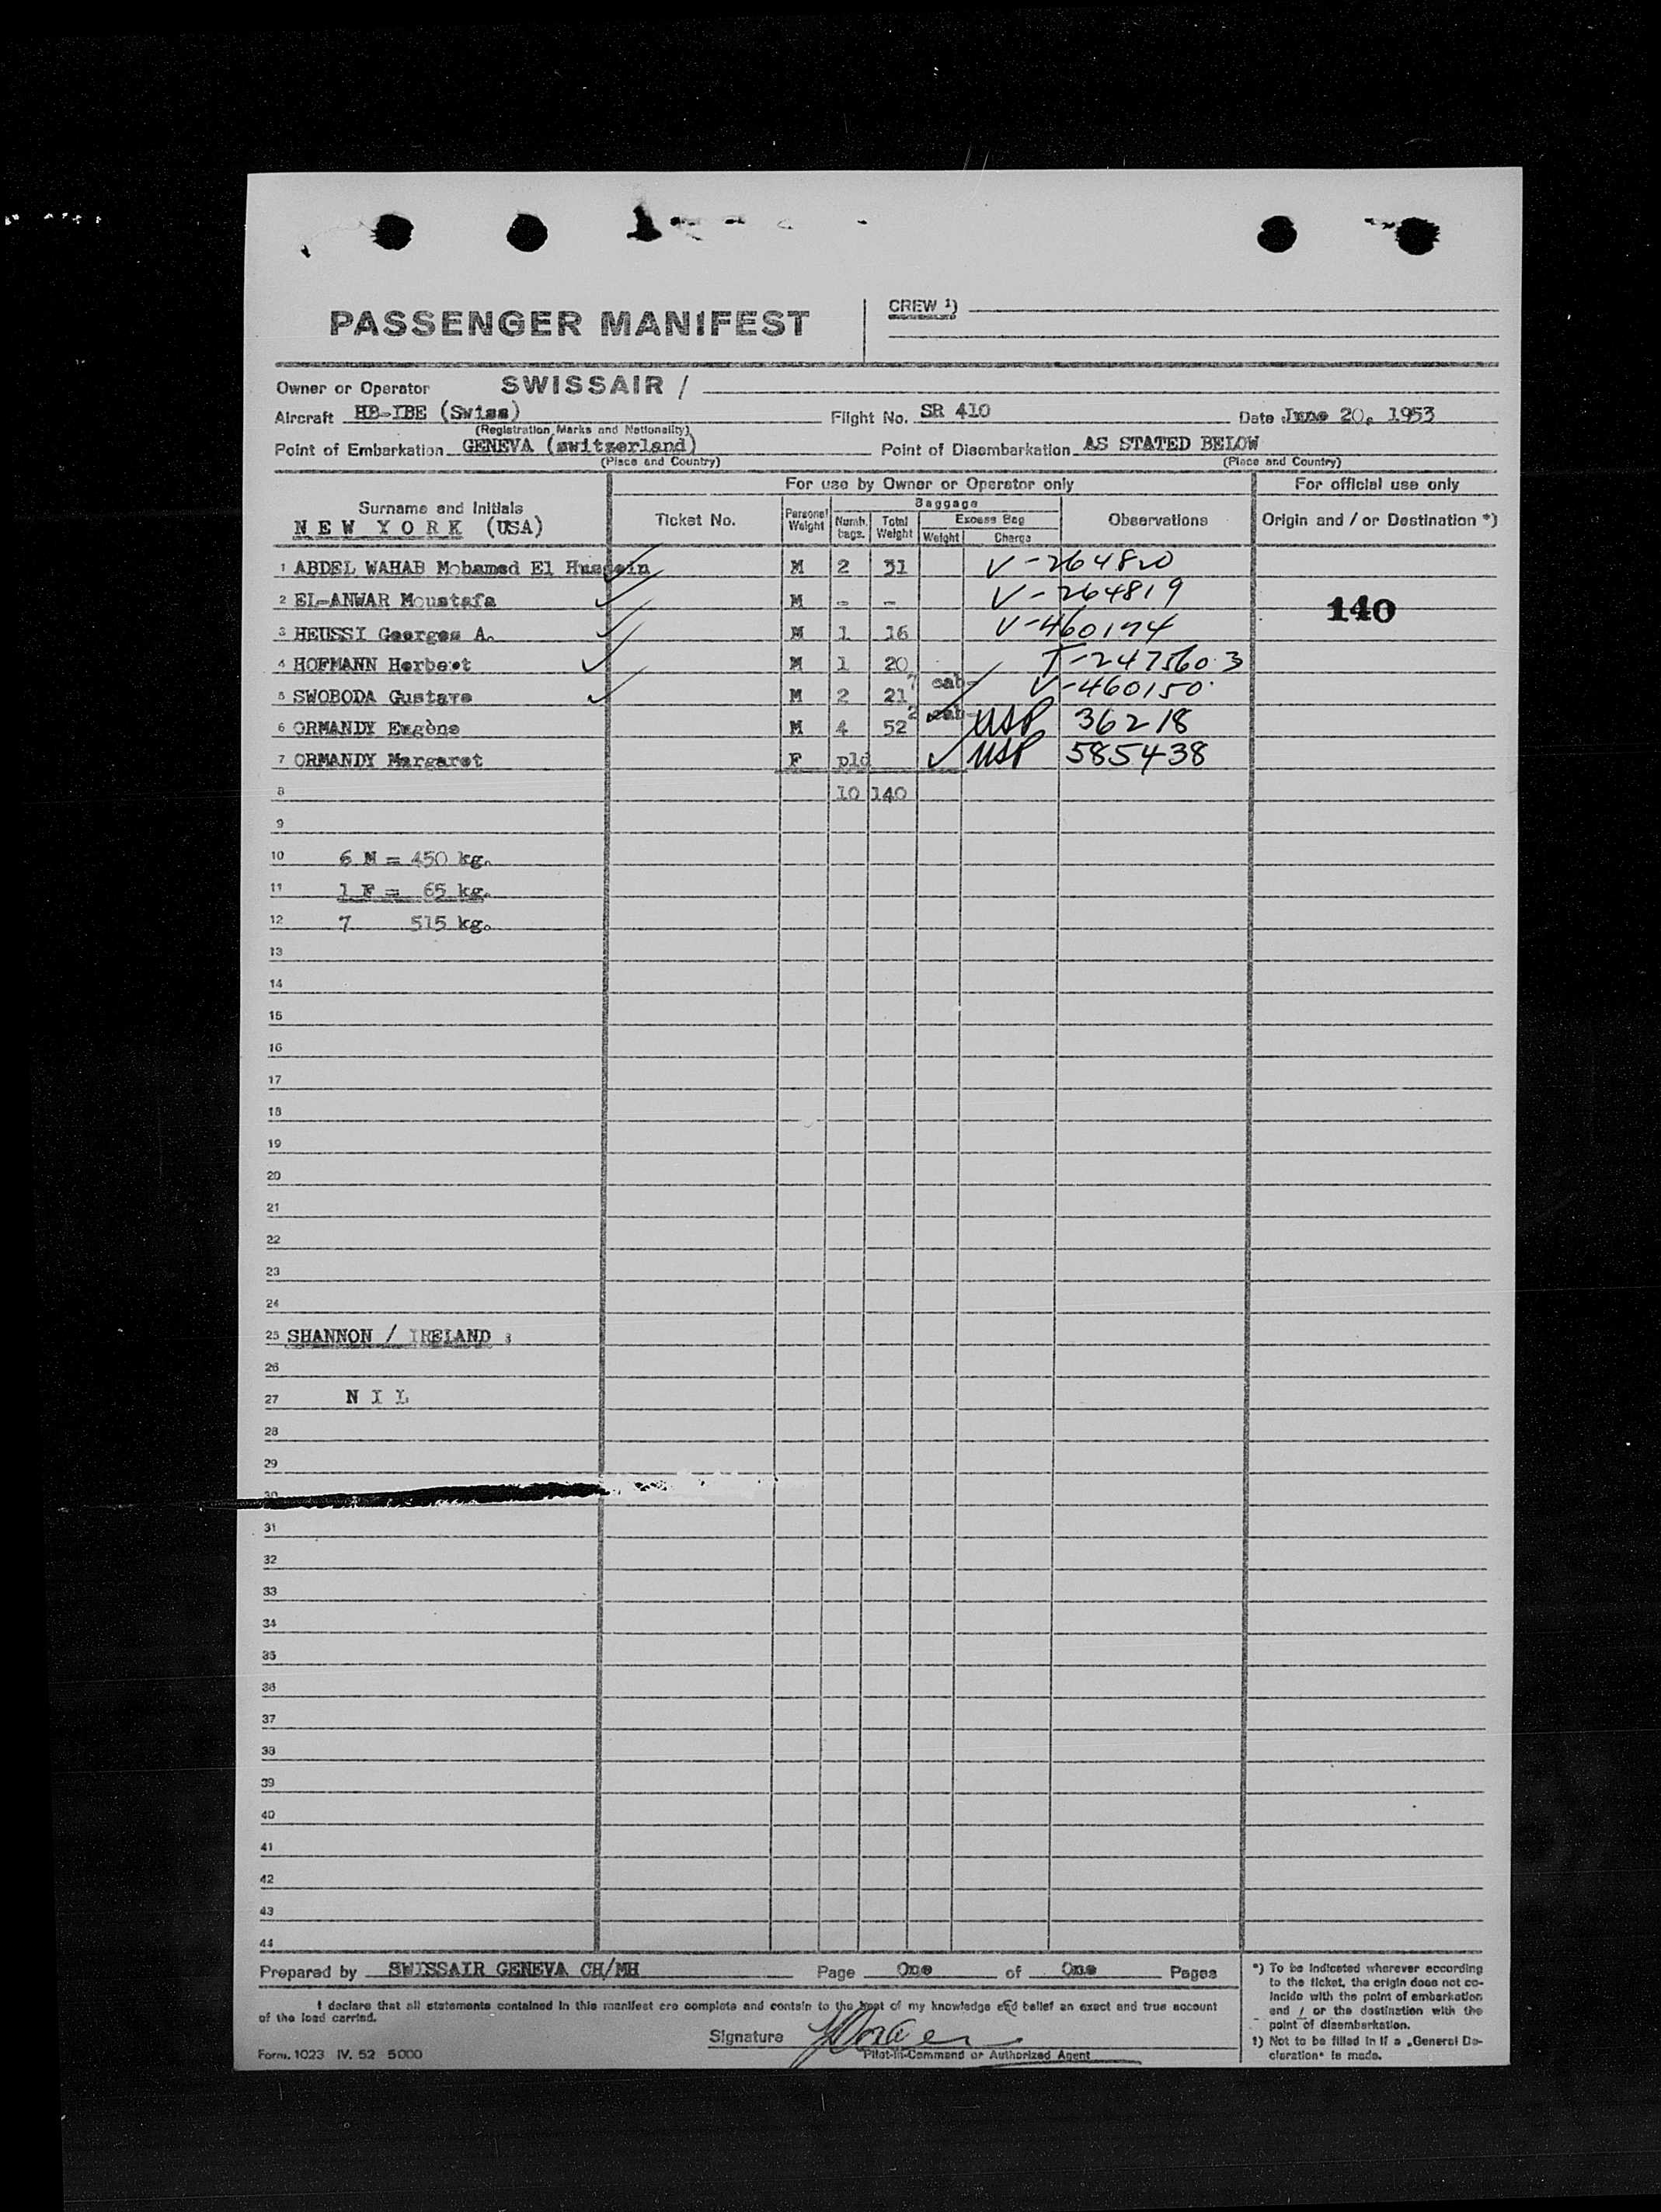 PASSENGER MANIFEST
CREW 1)
Owner or Operator SWISSAIR /
Aircraft HB-IBE (Swiss) Flight No. SR 410 Date June 20, 1953
(Registration Marks and Nationality)
Point of Embarkation GENEVA (switzerland) Point of Disembarkation AS STATED BELOW
(Place and Country) (Place and Country)
For use by Owner or Operator only For official use only
Surname and Initials Ticket No. Personal Weight Baggage Numb. bags. Total Weight Excess Bag Weight Charge Observations Origin and / or Destination *)
NEW YORK (USA)
1 ABDEL WAHAB Mohamed El Hussein M 2 31 V-264820
2 EL-ANWAR Moustafa M - - V-264819
140
3 HEUSSI Georges A. M 1 16 V-460174
4 HOFMANN Herbert M 1 20 T-2475603
5 SWOBODA Gustave M 2 21 7 cab- V-460150
6 ORMANDY Eugène M 4 52 2 cab- USP 36218
7 ORMANDY Margaret F pld USP 585438
8 10 140
9
10 6 M = 450 kg.
11 1 F = 65 kg.
12 7 515 kg.
13
14
15
16
17
18
19
20
21
22
23
24
25 SHANNON / IRELAND :
26
27 N I L
28
29
30
31
32
33
34
35
36
37
38
39
40
41
42
43
44
Prepared by SWISSAIR GENEVA CH/MH Page One of One Pages
I declare that all statements contained in this manifest are complete and contain to the best of my knowledge and belief an exact and true account
of the load carried.
Signature
Pilot-in-Command or Authorized Agent
Form. 1023 IV. 52 5000
*) To be indicated wherever according
to the ticket, the origin does not co-
incide with the point of embarkation
and / or the destination with the
point of disembarkation.
1) Not to be filled in if a „General De-
claration“ is made.